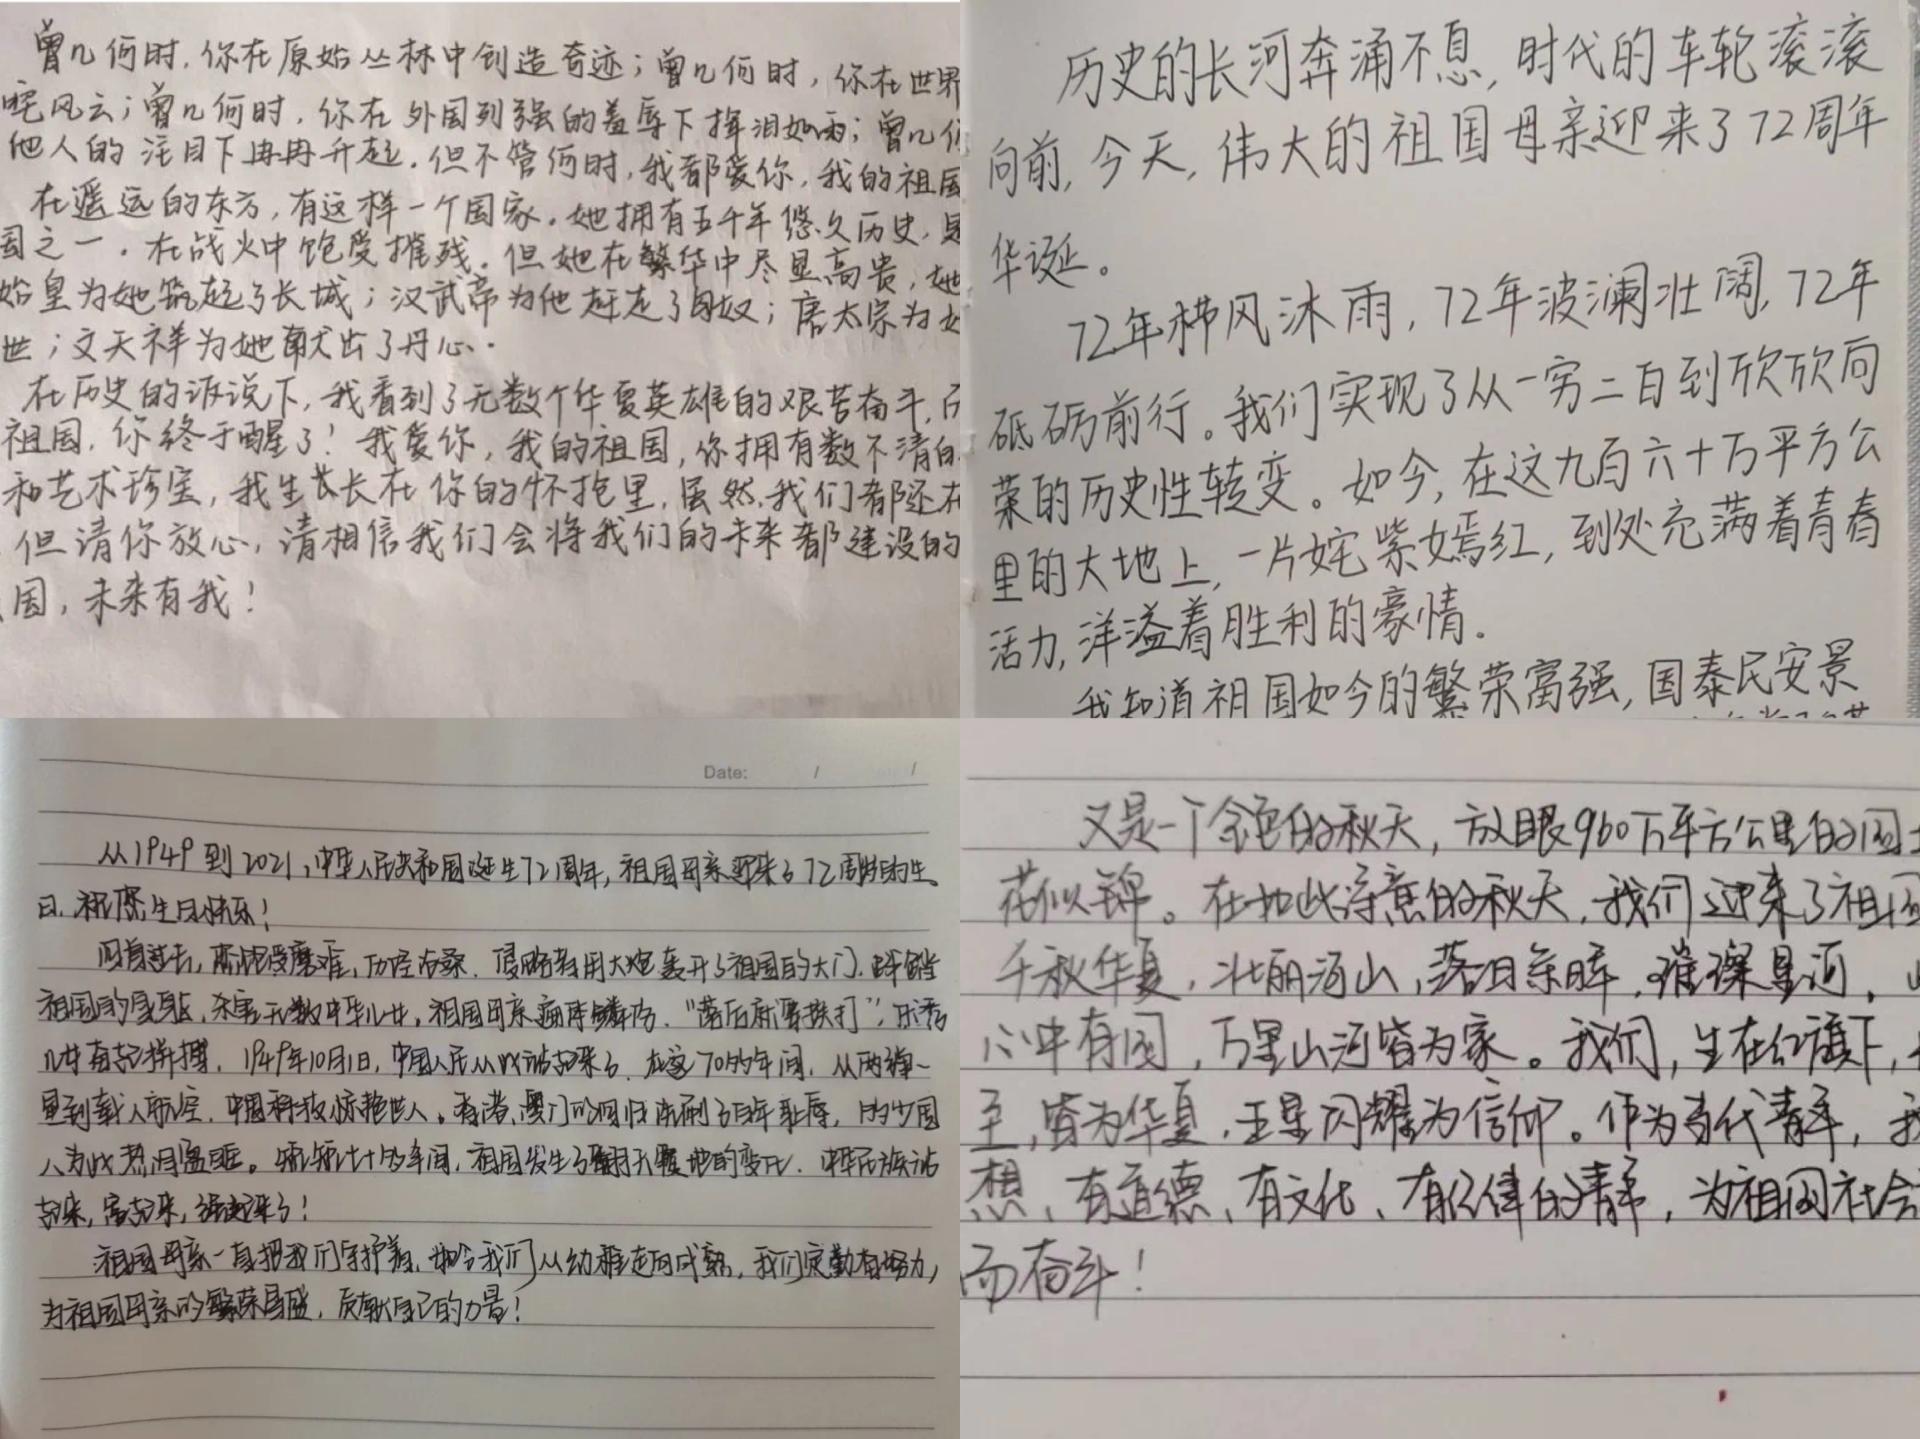 曾几何时,你在原始丛林中创造奇迹;曾几何时,你在世界
咤风云;曾几何时,你在外国列强的羞辱下挥泪如雨;曾几何
他人的注目下冉冉升起.但不管何时,我都爱你,我的祖国
在遥远的东方,有这样一个国家.她拥有五千年悠久历史,是
国之一.在战火中饱受摧残.但她在繁华中尽显高贵,她
始皇为她筑起了长城;汉武帝为他赶走了匈奴;唐太宗为
世;文天祥为她献出了丹心.
在历史的诉说下,我看到了无数个华夏英雄的艰苦奋斗,
祖国,你终于醒了!我爱你,我的祖国,你拥有数不清的
和艺术珍宝,我生长在你的怀抱里,虽然,我们都还在
但请你放心,请相信我们会将我们的未来都建设的
国,未来有我!
历史的长河奔涌不息,时代的车轮滚滚
向前,今天,伟大的祖国母亲迎来了72周年
华诞。
72年栉风沐雨,72年波澜壮阔,72年
砥砺前行。我们实现了从一穷二白到欣欣向
荣的历史性转变。如今,在这九百六十万平方公
里的大地上,一片姹紫嫣红,到处充满着青春
活力,洋溢着胜利的豪情.
我知道祖国如今的繁荣富强,国泰民安景
Date: / /
从1949到2021,中华人民共和国诞生72周年,祖国母亲迎来了72周年的生
日.祝您生日快乐!
回首过去,您饱受磨难,历经沧桑.侵略者用大炮轰开了祖国的大门.
祖国的身躯,杀害无数中华儿女,祖国母亲遍体鳞伤."落后就要挨打",
儿女奋起拼搏,1949年10月1日,中国人民从此站起来了.在这70多年间,从两弹一
星到载人航空.中国科技惊艳世人。香港、澳门的回归洗刷了百年耻辱,的少国
人为此热泪盈眶。短短几十多年间,祖国发生了翻天覆地的变化.中华民族站
起来,富起来,强起来了!
祖国母亲一直把我们守护着,如今我们从幼稚走向成熟,我们定勤奋努力,
为祖国母亲的繁荣昌盛,贡献自己的力量!
又是一个金色的秋天,放眼960万平方公里的国土
花似锦。在如此诗意的秋天,我们迎来了祖国
千秋华夏,壮丽河山,落日余晖,璀璨星河,
心中有国,万里山河皆为家。我们,生在红旗下,
至,皆为华夏.五星闪耀为信仰。作为当代青年,我
想、有道德、有文化、有纪律的青年,为祖国社会
而奋斗!